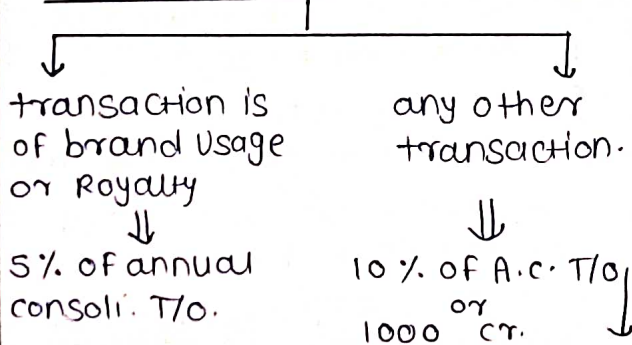 transaction is
of brand usage
or Royalty
⇓
5% of annual
consoli. T/O.
any other
transaction.
⇓
10% of A.C. T/O
or
1000 cr. ↓